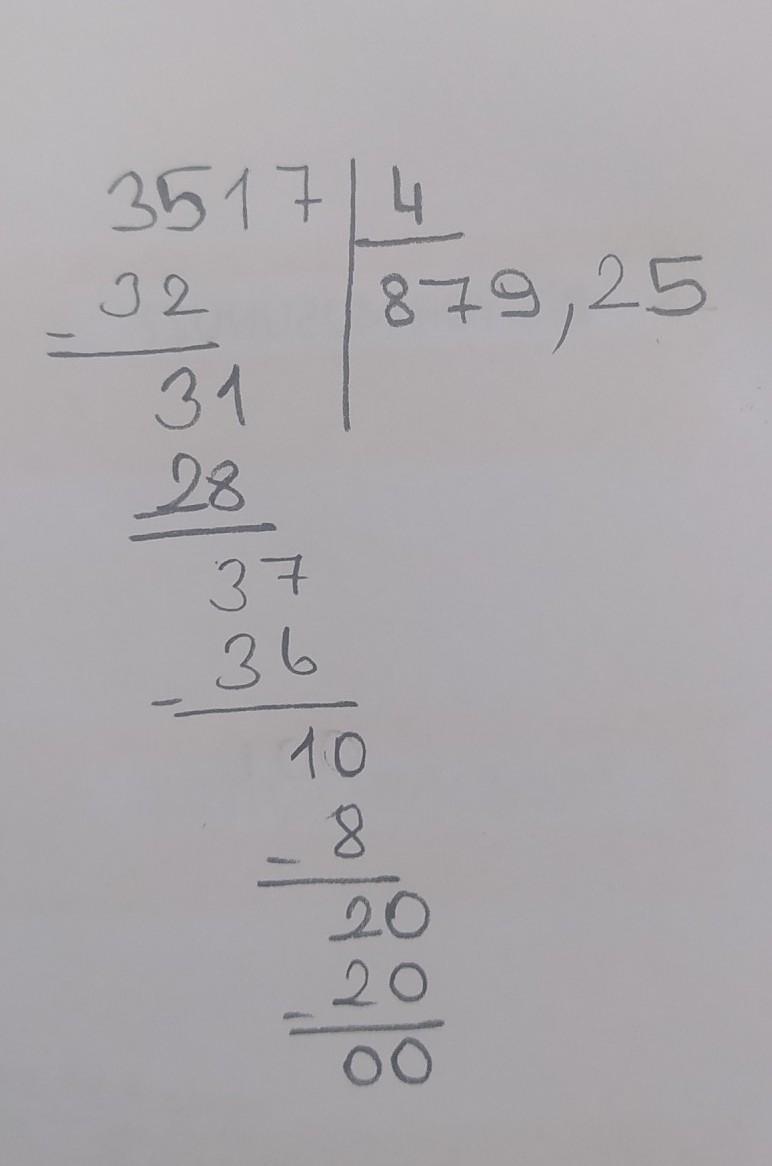 3517 4
32 879,25
-
31
28
-
37
36
-
10
- 8
20
20
-
00